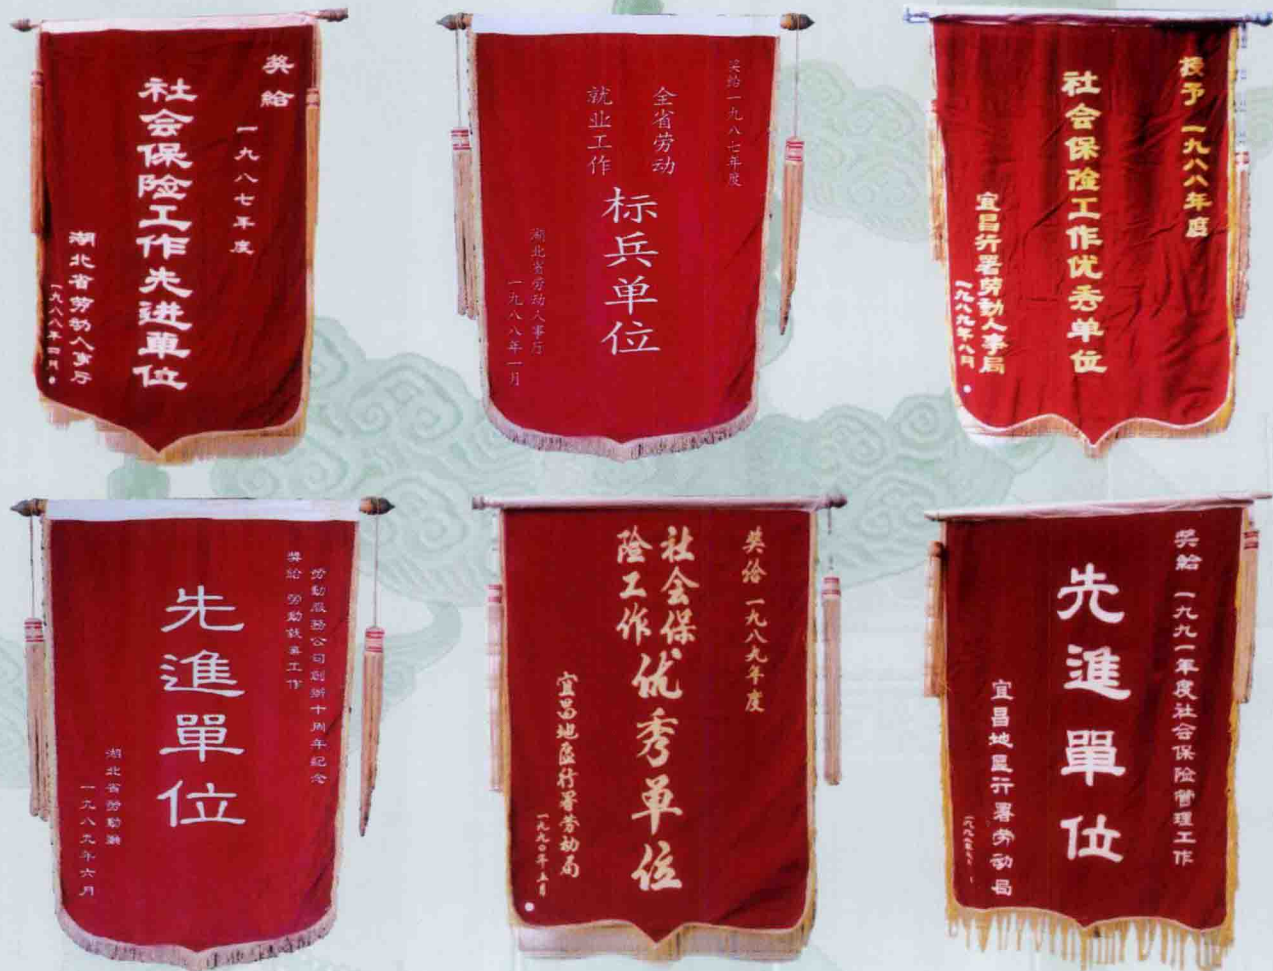 奖给
一九八七年度
社会保险工作先进單位
湖北省劳动人事厅
一九八八年四月
奖给一九八七年度
全省劳动
就业工作
标兵单位
湖北省劳动人事厅
一九八八年一月
授予一九八八年度
社会保险工作优秀单位
宜昌行署劳动人事局
一九八九年八月
勞動服務公司創辦十周年紀念
獎給 勞動就業工作
先進單位
湖北省勞動廳
一九八九年六月
奖给一九八九年度
社会保
险工作优秀单位
宜昌地区行署劳动局
一九九〇年五月
奖给一九九一年度社会保险管理工作
先進單位
宜昌地区行署劳动局